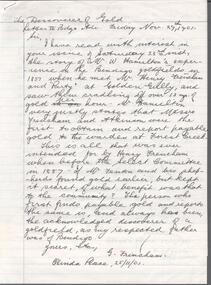 The Discoverer of Gold
Letter to Bdgo. Adv. Friday Nov. 29th 1901.
Sir,
I have read with interest in
your issue of Saturday 23rd inst,
the story of Mr W Hamilton's exper-
ience on the Bendigo goldfields in
1851 when he met Mr. Henry Frencham
and Party at Golden Gully, and
saw them washing off 13 oz of
gold in an hour. Mr Hamilton
apparently states that Messrs
Frencham and Atkinson were the
first to obtain and report payable
gold to the warden at Forest Creek
This is all that was ever
intended for by Henry Frencham
when before the Select Committee
in 1887. If Mr. and two shep-
herds found gold earlier, but kept
it secret, of what benefit was that
to the community? The person who
first finds payable gold and reports
the same is, and always has been,
the acknowledged discoverer of a
goldfield, as my respected father
was of Bendigo.
Yours, Etc,
G. Frencham.
Place, 25/11/01.